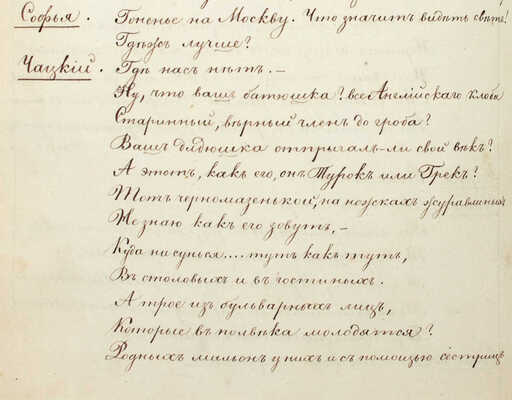 Софья. Гоненье на Москву. Что значитъ видѣть свѣтъ!
Гдѣжъ лучше?
Чацкій. Гдѣ насъ нѣтъ. —
Ну, что вашъ батюшка? все Англійскаго клоба
Старинный, вѣрный членъ до гроба?
Вашъ дядюшка отпрыгалъ-ли свой вѣкъ?
А этотъ, какъ его, онъ Турокъ или Грекъ?
Тотъ черномазенькой, на ножкахъ журавлиныхъ
Незнаю какъ его зовутъ, —
Куда ни сунься.... тутъ какъ тутъ,
Въ столовыхъ и въ гостиныхъ.
А трое изъ бульварныхъ лицъ,
Которые въ полвѣка молодятся?
Родныхъ мильонъ у нихъ и съ помощью сестрицъ